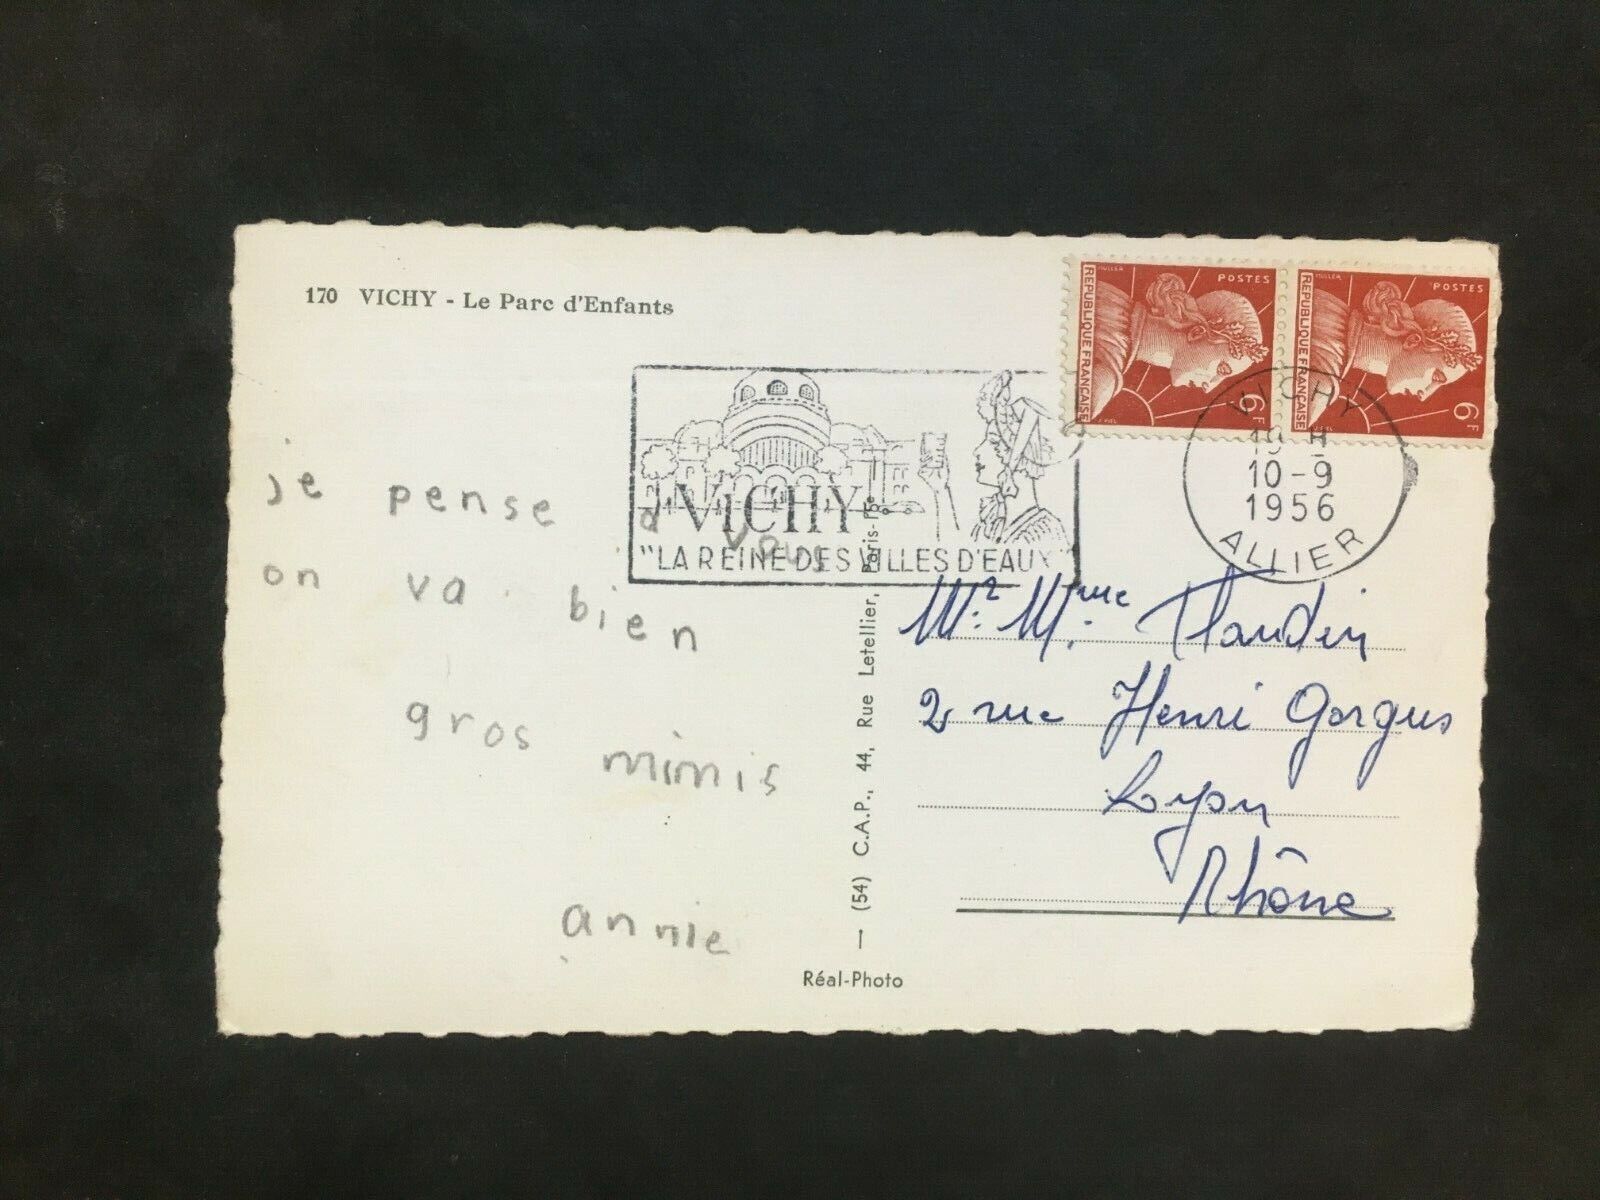 170 VICHY - Le Parc d'Enfants
REPUBLIQUE FRANÇAISE
MULLER
POSTES
6F
J. PIEL
REPUBLIQUE FRANÇAISE
MULLER
POSTES
6F
J. PIEL
VICHY
"LA REINE DES VILLES D'EAUX"
VICHY
10-9
1956
ALLIER
je pense à vous
on va bien
gros mimis
annie
(54) C.A.P., 44, Rue Letellier, Paris-15e
Réal-Photo
Mr. Mme
2 rue Henri Gorgus
Lyon
Rhône